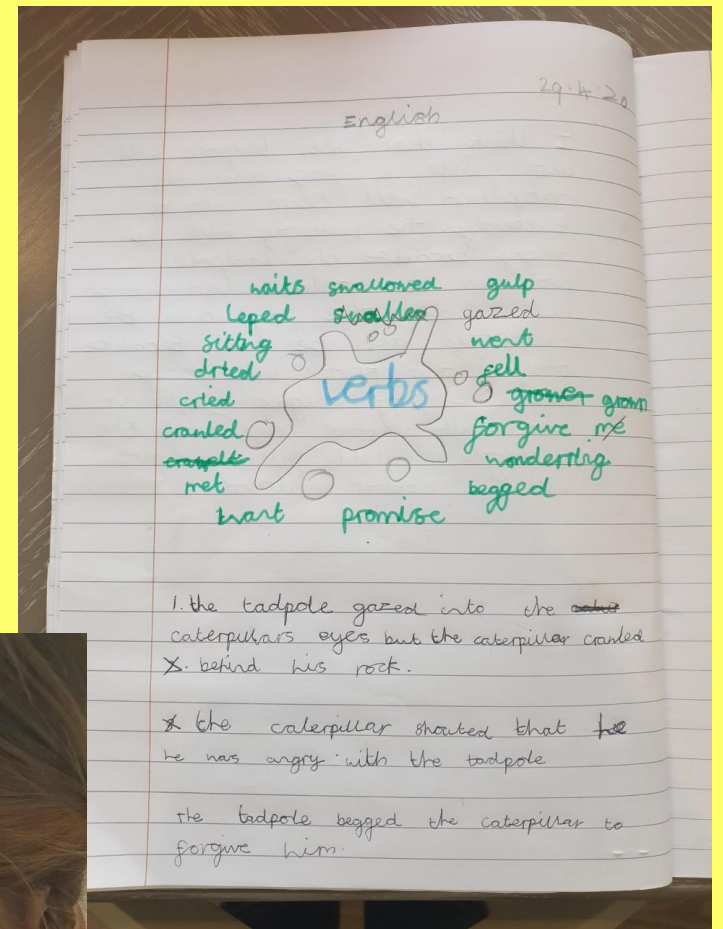 29.4.20
English
waits swallowed gulp
leped swallex gazed
sitting went
drted fell
cried grower grown
crawled forgive me
met wonderring
begged
want promise
verbs
1. the tadpole gazed into the
caterpillars eyes but the caterpillar crawled
X. behind his rock.
X the caterpillar shouted that he
he was angry with the tadpole
The tadpole begged the caterpillar to
forgive him.